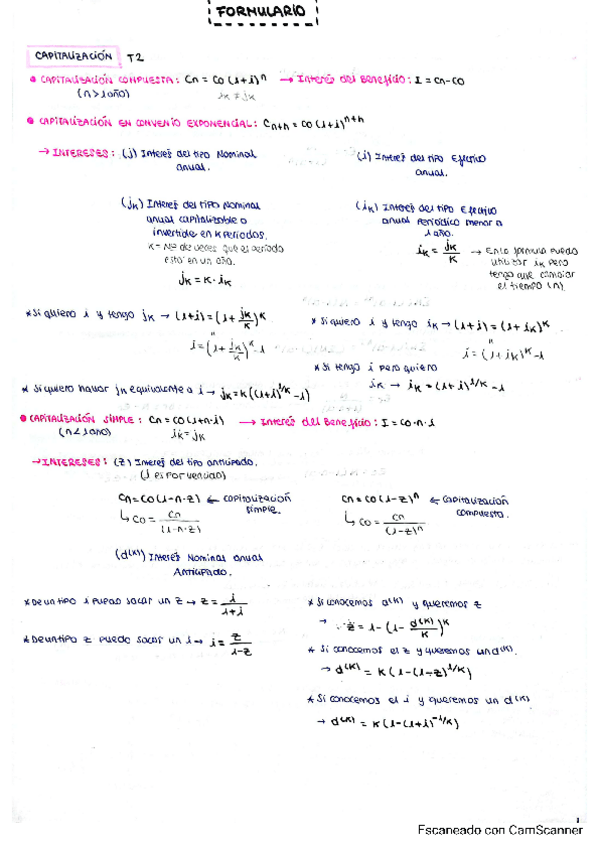 FORMULARIO
CAPITALIZACIÓN T2
• CAPITALIZACIÓN COMPUESTA: Cn = Co (1+i)^n → Interés del Beneficio: I = Cn-Co
(n>1año) ik ≠ jk
• CAPITALIZACIÓN EN CONVENIO EXPONENCIAL: Cn+h = Co (1+i)^n+h
→ INTERESES: (j) Interés del tipo Nominal anual.
(i) Interés del tipo Efectivo anual.
(jk) Interés del tipo Nominal
anual capitalizable o
invertide en K periodos.
K = Nº de veces que el periodo
está en un año.
jk = K · ik
(ik) Interés del tipo Efectivo
anual periódico menor a
1 año.
ik = jk/K → En la formula puedo
utilizar ik pero
tengo que cambiar
el tiempo (n).
* Si quiero i y tengo jk → (1+i) = (1 + jk/K)^K
i = (1 + jk/K)^K - 1
* Si quiero i y tengo ik → (1+i) = (1 + ik)^K
i = (1 + ik)^K - 1
* Si tengo i pero quiero
ik → ik = (1+i)^1/K - 1
* Si quiero hallar jk equivalente a i → jk = K((1+i)^1/K - 1)
• CAPITALIZACIÓN SIMPLE: Cn = Co(1+n·i) → Interés del Beneficio: I = Co·n·i
(n<1año) ik = jk
→ INTERESES: (z) Interés del tipo anticipado.
(i es por vencido)
Cn = Co(1-n·z) ← capitalización
simple.
↳ Co = Cn/(1-n·z)
Cn = Co(1-z)^n ← capitalización
compuesta.
↳ Co = Cn/(1-z)^n
(d^(K)) Interés Nominal anual
Anticipado.
* De un tipo i puedo sacar un z → z = i/1+i
* De un tipo z puedo sacar un i → i = z/1-z
* Si conocemos d^(K) y queremos z
→ z = 1-(1 - d^(K)/K)^K
* Si conocemos el z y queremos un d^(K).
→ d^(K) = K(1-(1-z)^1/K)
* Si conocemos el i y queremos un d^(K)
→ d^(K) = K(1-(1+i)^-1/K)
1
Escaneado con CamScanner